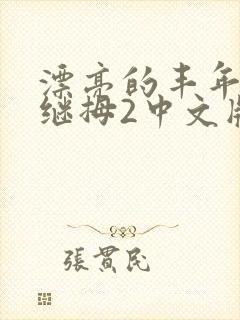 漂亮的丰年
继拇2中文版
張貫民